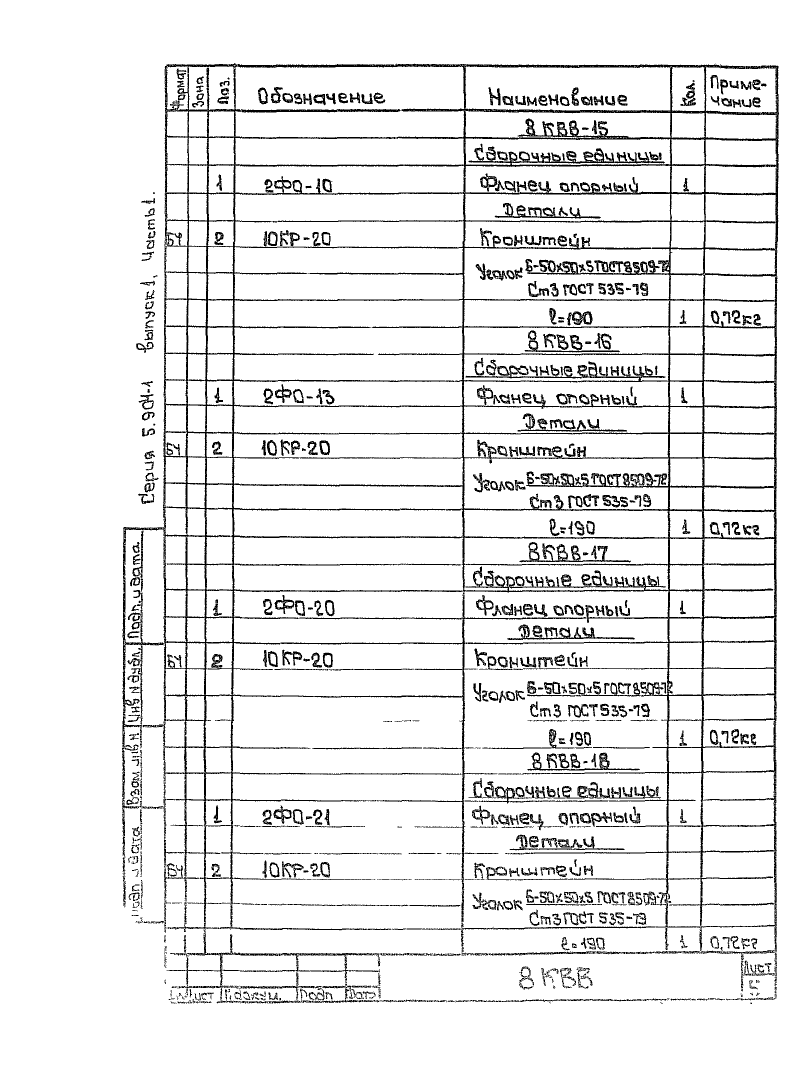 Формат Зона Поз. Обозначение Наименование Кол. Приме-
чание
8КВВ-15
Сборочные единицы
1 2ФО-10 Фланец опорный 1
Детали
БЧ 2 10КР-20 Кронштейн
Уголок Б-50х50х5 ГОСТ 8509-72
Ст3 ГОСТ 535-79
ℓ=190 1 0,72кг
8КВВ-16
Сборочные единицы
1 2ФО-13 Фланец опорный 1
Детали
БЧ 2 10КР-20 Кронштейн
Уголок Б-50х50х5 ГОСТ 8509-72
Ст3 ГОСТ 535-79
ℓ=190 1 0,72кг
8КВВ-17
Сборочные единицы
1 2ФО-20 Фланец опорный 1
Детали
БЧ 2 10КР-20 Кронштейн
Уголок Б-50х50х5 ГОСТ 8509-72
Ст3 ГОСТ 535-79
ℓ=190 1 0,72кг
8КВВ-18
Сборочные единицы
1 2ФО-21 Фланец опорный 1
Детали
БЧ 2 10КР-20 Кронштейн
Уголок Б-50х50х5 ГОСТ 8509-72
Ст3 ГОСТ 535-79
ℓ=190 1 0,72кг
8КВВ
Лист
5
Лист № докум. Подп Дата
Серия 5.904-1 выпуск 1, Часть 1.
Подп. и дата
Инв N дубл.
Взам инв N
Подп и дата